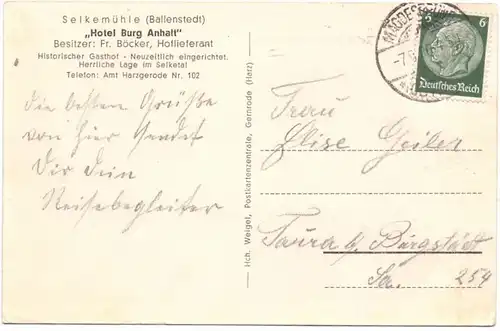 Selkemühle (Ballenstedt)
„Hotel Burg Anhalt"
Besitzer: Fr. Böcker, Hoflieferant
Historischer Gasthof - Neuzeitlich eingerichtet.
Herrliche Lage im Selketal
Telefon: Amt Harzgerode Nr. 102
die besten Grüße
von hier sendet
Dir dein
Reisebegleiter
Hch. Weigel, Postkartenzentrale, Gernrode (Harz)
MAGDEBURG
-7.
6 6
Deutsches Reich
Frau
Elise Geilen
Taura b. Burgstädt
Sa. 254